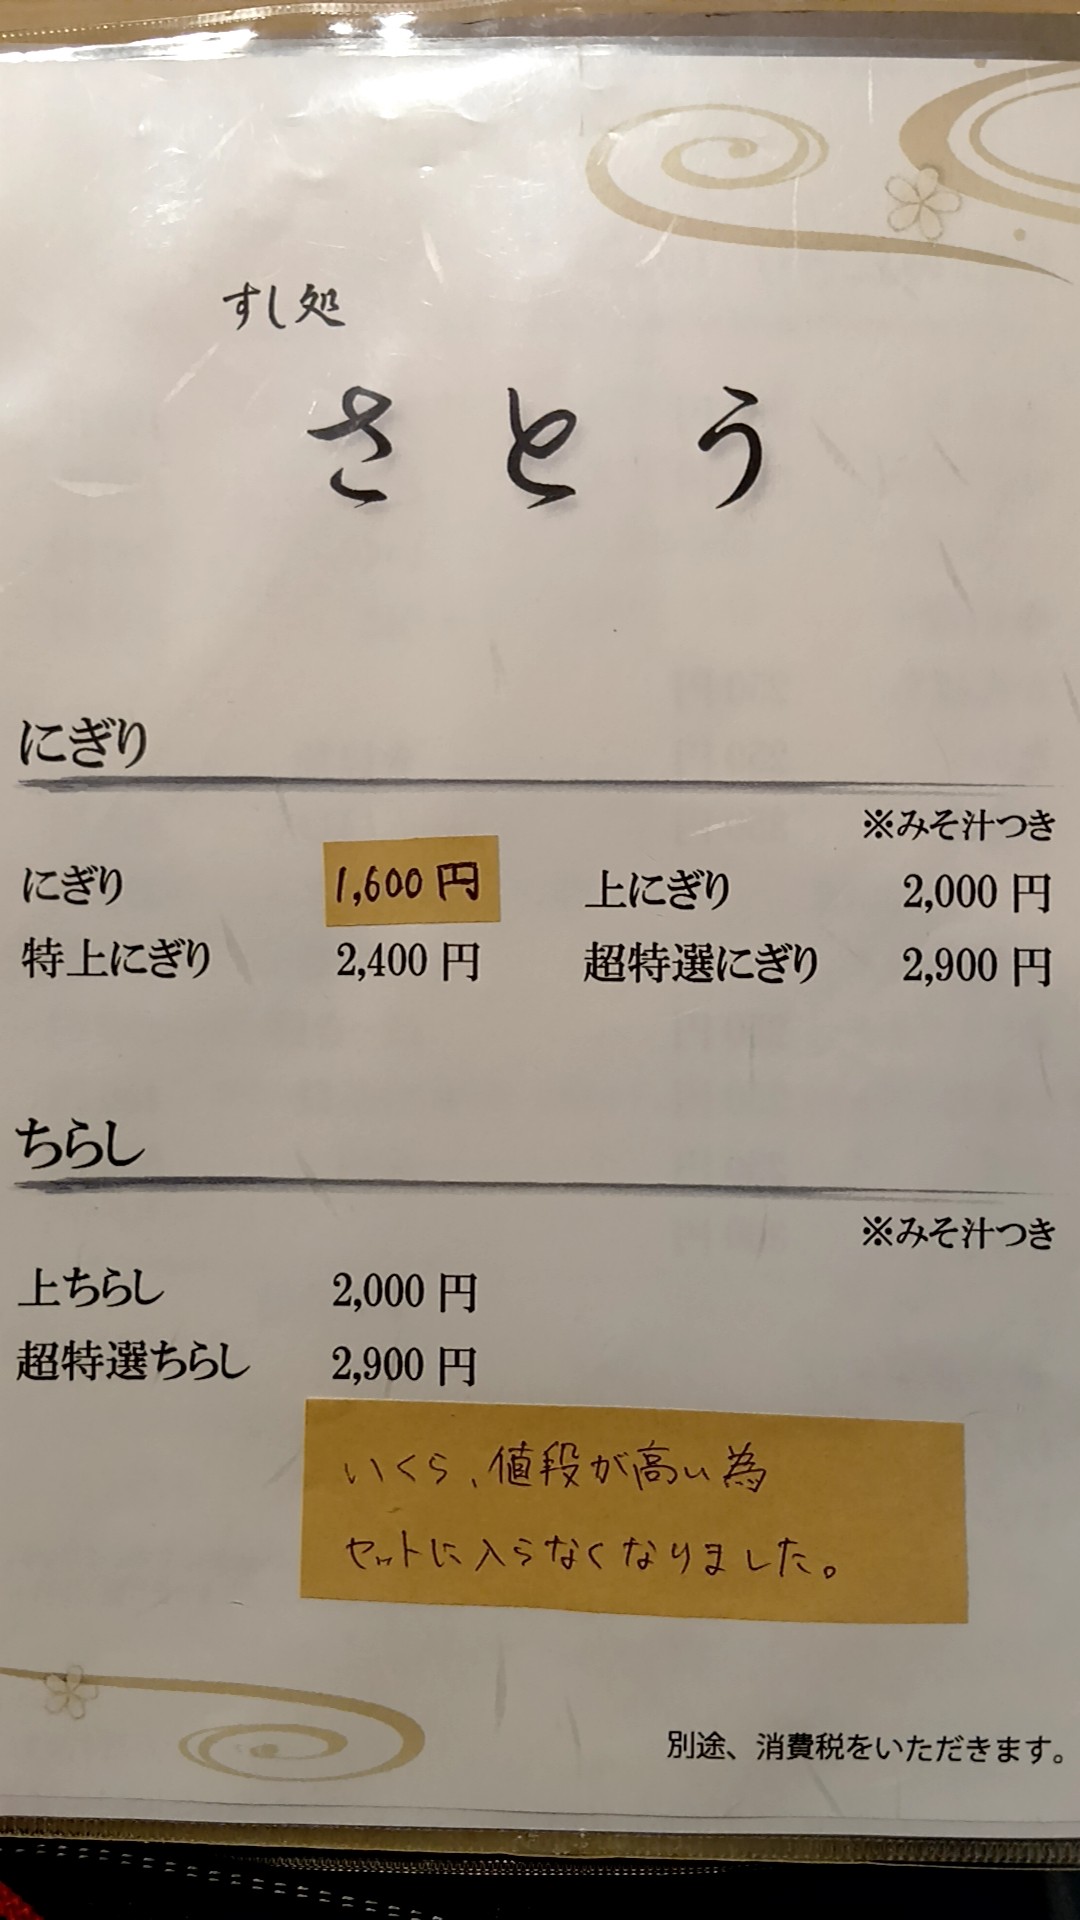 すし処
さとう
にぎり
※みそ汁つき
にぎり 1,600 円 上にぎり 2,000 円
特上にぎり 2,400 円 超特選にぎり 2,900 円
ちらし
※みそ汁つき
上ちらし 2,000 円
超特選ちらし 2,900 円
いくら、値段が高い為
セットに入らなくなりました。
別途、消費税をいただきます。